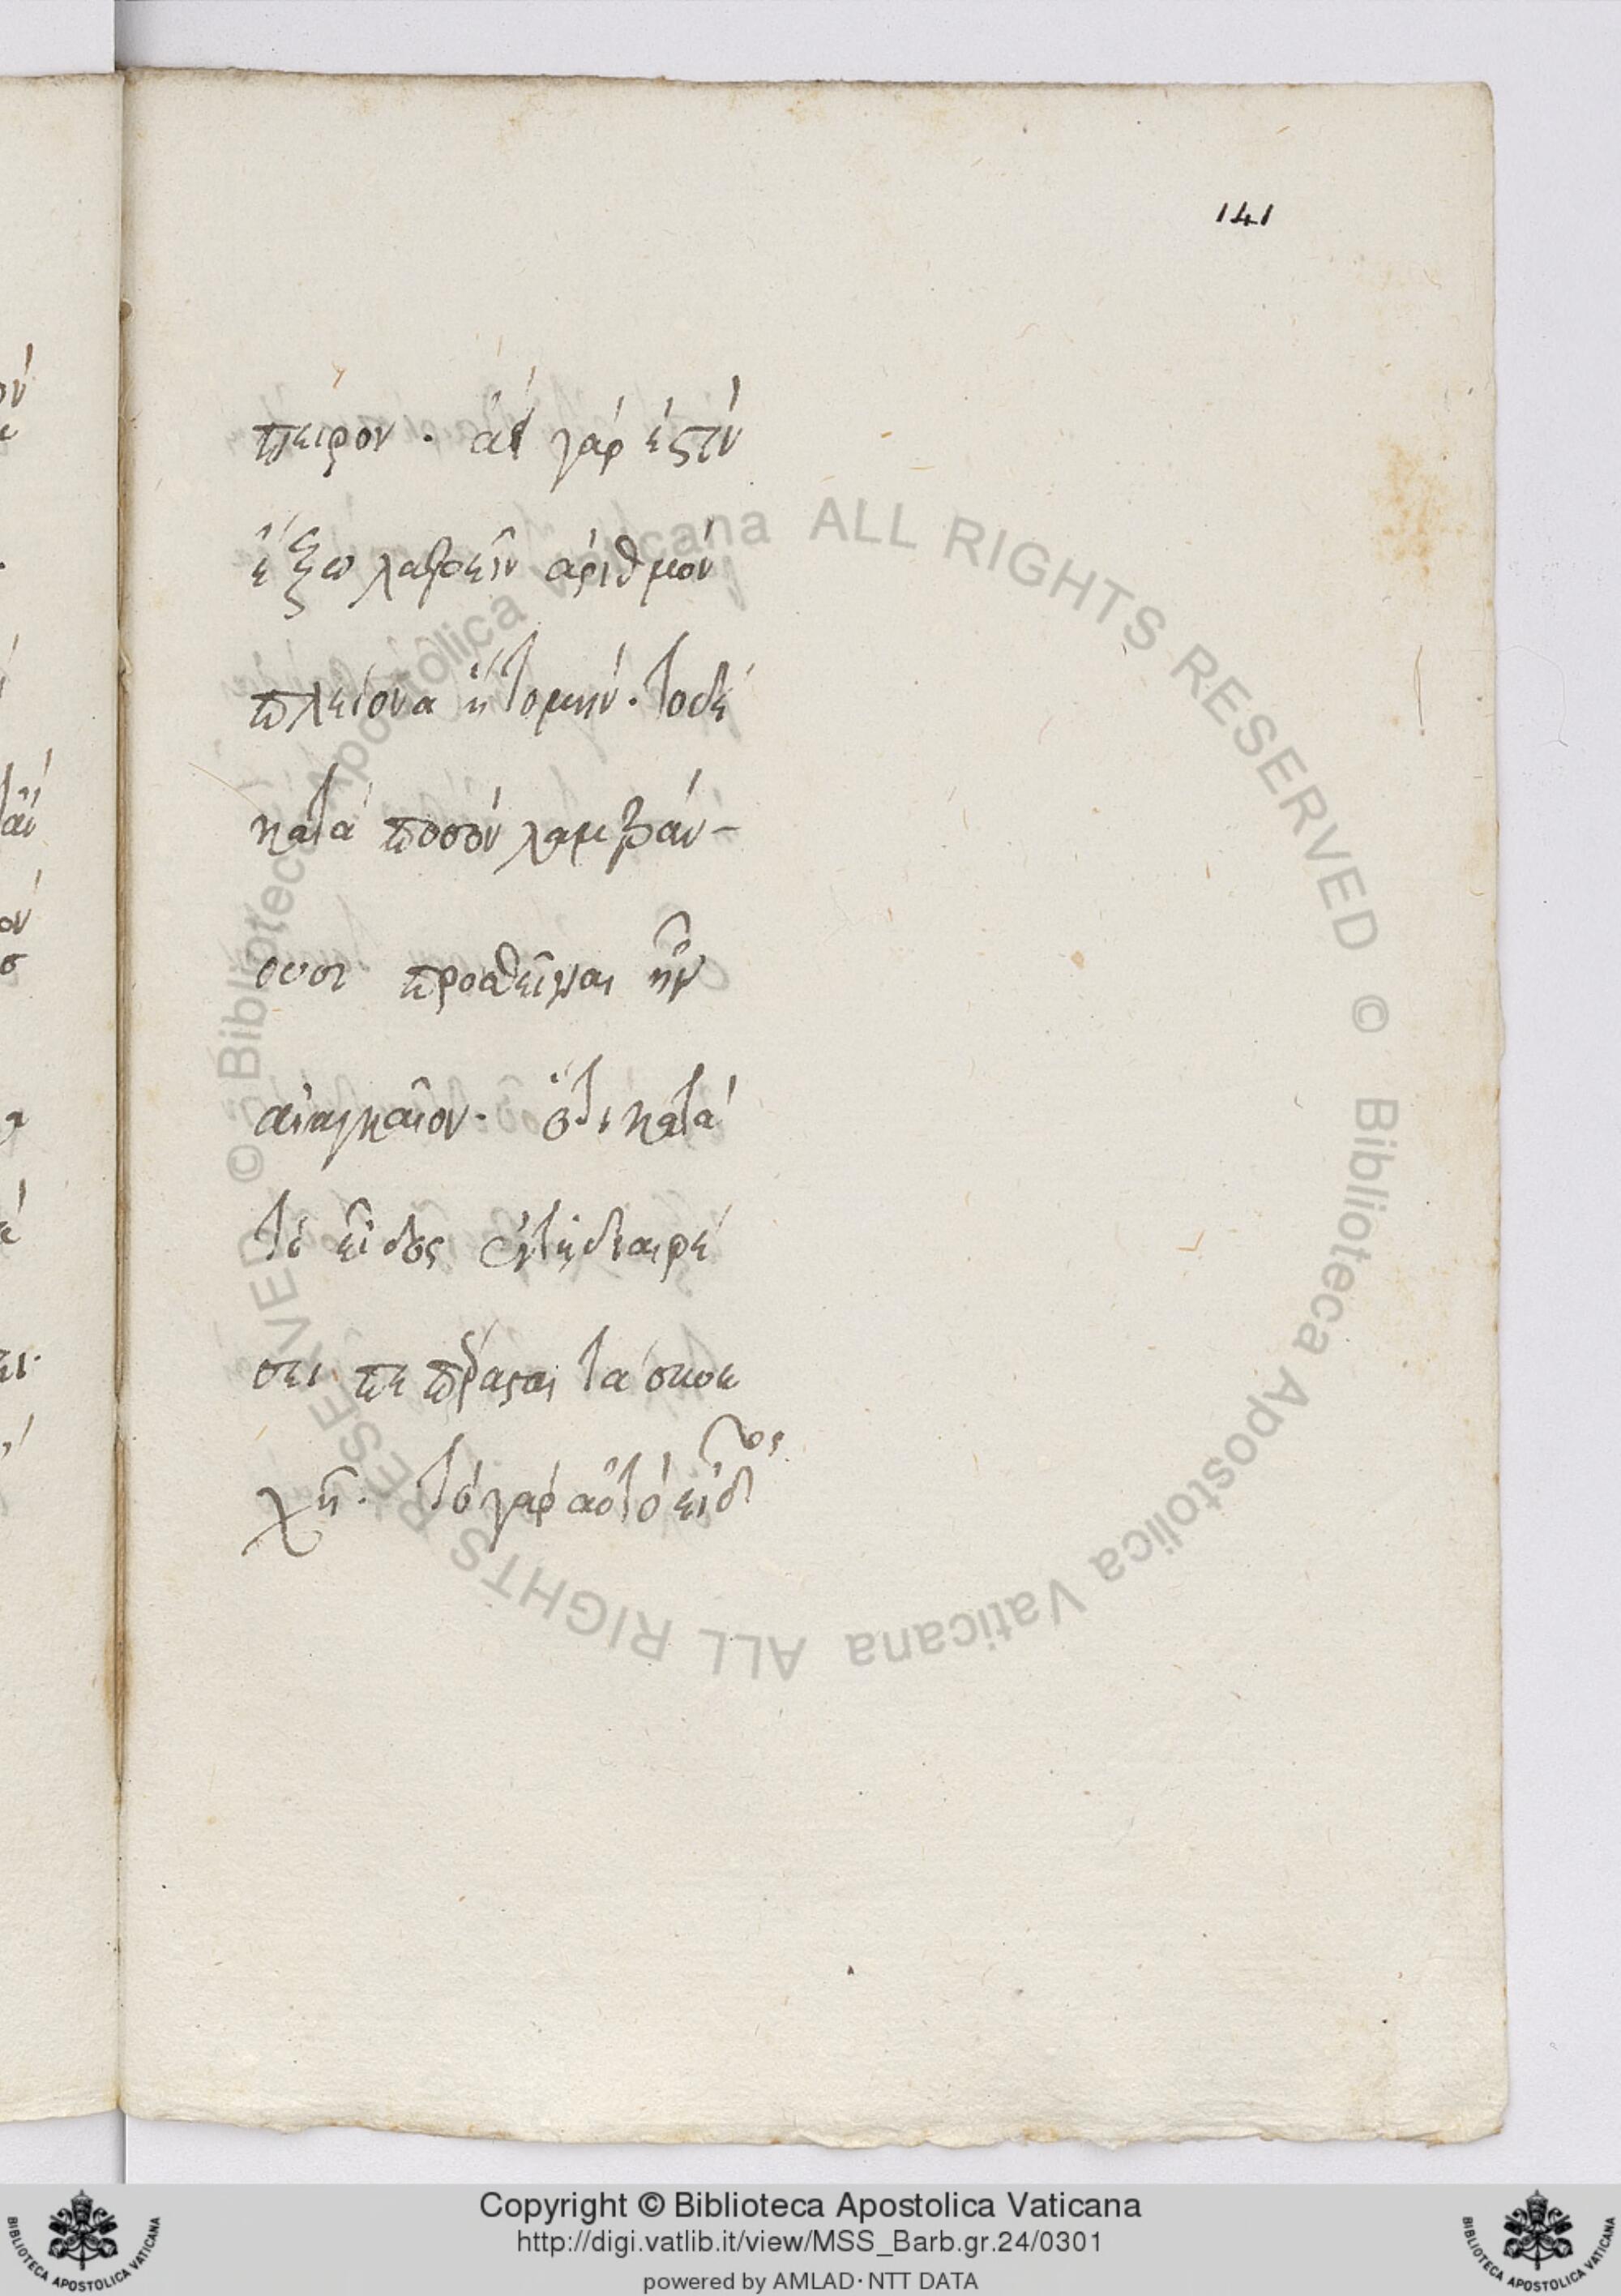 141
πειρον. ἀεὶ γάρ ἐστὶν
ἔξω λαβεῖν ἀριθμὸν
πλείονα ἢ τομήν. τὸ δὲ
κατὰ ποσὸν λαμβάν-
ουσι προσθεῖναι ἦν
ἀναγκαῖον. ὅτι κατὰ
τὸ εἶδος ἐν τῇ διαιρέ
σει πεπέρασται τὸ συνε
χῆ. τὸ γὰρ αὐτὸ εἶδος
© Biblioteca Apostolica Vaticana ALL RIGHTS RESERVED © Biblioteca Apostolica Vaticana ALL RIGHTS RESERVED
Copyright © Biblioteca Apostolica Vaticana
http://digi.vatlib.it/view/MSS_Barb.gr.24/0301
powered by AMLAD·NTT DATA
BIBLIOTECA APOSTOLICA VATICANA
BIBLIOTECA APOSTOLICA VATICANA